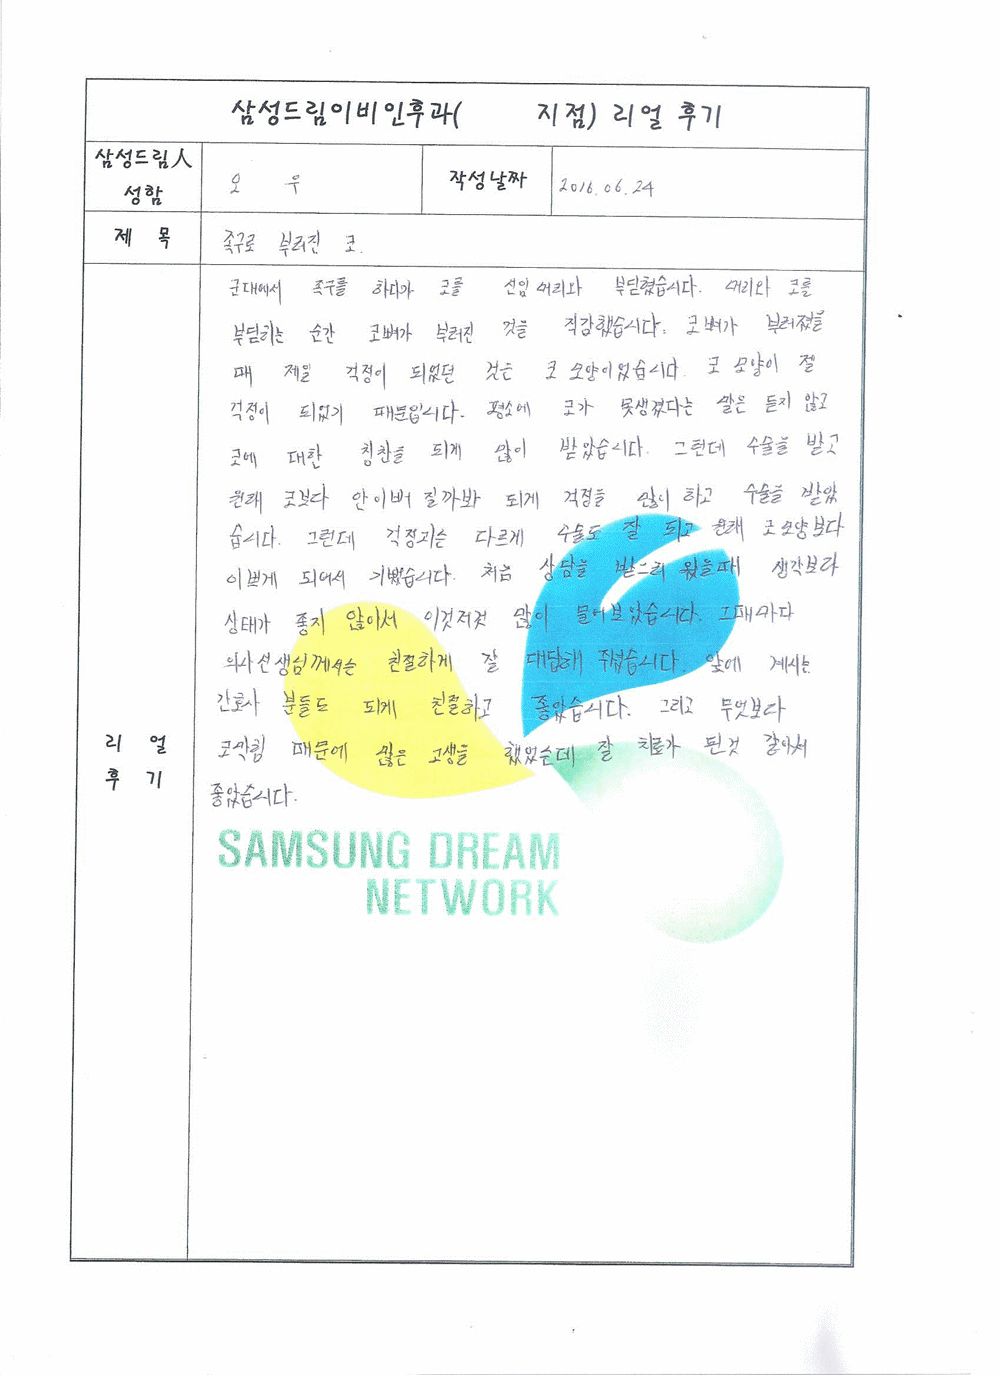 삼성드림이비인후과(      지점) 리얼 후기
삼성드림人 성함
오 우
작성날짜
2016.06.24
제 목
족구로 부러진 코.
리 얼 후 기
군대에서 족구를 하다가 코를 선임 머리와 부딛혔습니다. 머리와 코를
부딛히는 순간 코뼈가 부러진 것을 직감했습니다. 코뼈가 부러졌을
때 제일 걱정이 되었던 것은 코 모양이었습니다. 코 모양이 젤
걱정이 되었기 때문입니다. 평소에 코가 못생겼다는 말은 듣지 않고
코에 대한 칭찬을 되게 많이 받았습니다. 그런데 수술을 받고
원래 코보다 안이뻐 질까봐 되게 걱정을 많이 하고 수술을 받았
습니다. 그런데 걱정과는 다르게 수술도 잘 되고 원래 코 모양보다
이쁘게 되어서 기뻤습니다. 처음 상담을 받으러 왔을때 생각보다
상태가 좋지 않아서 이것저것 많이 물어보았습니다. 그때마다
의사선생님께서는 친절하게 잘 대답해 주셨습니다. 앞에 계시는
간호사 분들도 되게 친절하고 좋았습니다. 그리고 무엇보다
코막힘 때문에 많은 고생을 했었는데 잘 치료가 된것 같아서
좋았습니다.
SAMSUNG DREAM
NETWORK